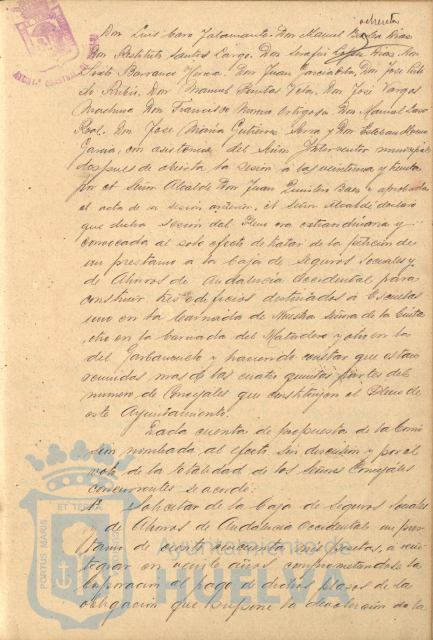 ochenta
Don Luis Caro Jalamante. Don Manuel Díaz.
Don Restituto Santos Largo. Don Serafín Díaz. Don
Barranco Don Juan García Don José
Rubio. Don Manuel Vela. Don José Vargas
Machuca Don Francisco Ortigosa. Don Manuel
Real. Don José María Gutiérrez Serra y Don Esteban
García, con asistencia del Señor Interventor municipal
despues de abierta la sesion a las veintiuna y treinta
por el Señor Alcalde Don Juan Quintero Baez y aprobada
el acta de su sesion anterior, el Señor Alcalde declaró
que dicha sesion del Pleno era extraordinaria y
convocada al solo efecto de tratar de la peticion de
un prestamo a la Caja de Seguros Sociales y
de Ahorros de Andalucia Occidental para
construir tres edificios destinados á Escuelas
uno en la barriada de Nuestra Señora de la Cinta
otro en la barriada del Matadero y otro en la
del Garbanzuelo y haciendo constar que estaban
reunidos mas de las cuatro quintas partes del
numero de Concejales que constituyen el Pleno de
este Ayuntamiento.
Dada cuenta de propuesta de la Comi
sion nombrada al efecto, sin discusion y por el
voto de la totalidad de los Señores Concejales
concurrentes se acordó:
1º Solicitar de la Caja de Seguros Sociales
y de Ahorros de Andalucia Occidental un pres
tamo de ciento cincuenta mil pesetas, a rein
tegrar en veinte años comprometiendose la
Corporacion al pago de dichos plazos de la
obligacion que supone la devolucion de la
PORTUS MARIS ET TERRAE CUSTODIA
Ayuntamiento de
HUELVA